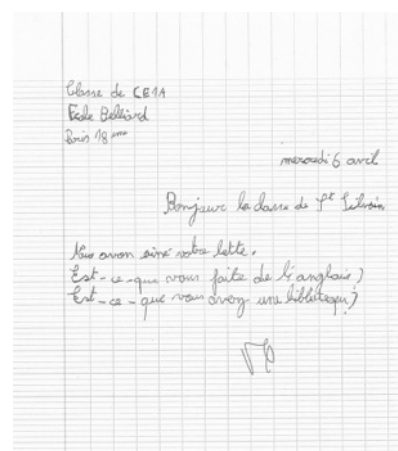 Classe de CE1A
École Belliard
Paris 18ème
mercredi 6 avril
Bonjour la classe de St Silvain
Nous avon aimé votre lette.
Est-ce-que vous faite de l'anglais?
Est-ce-que vous avez une blibliotequ?